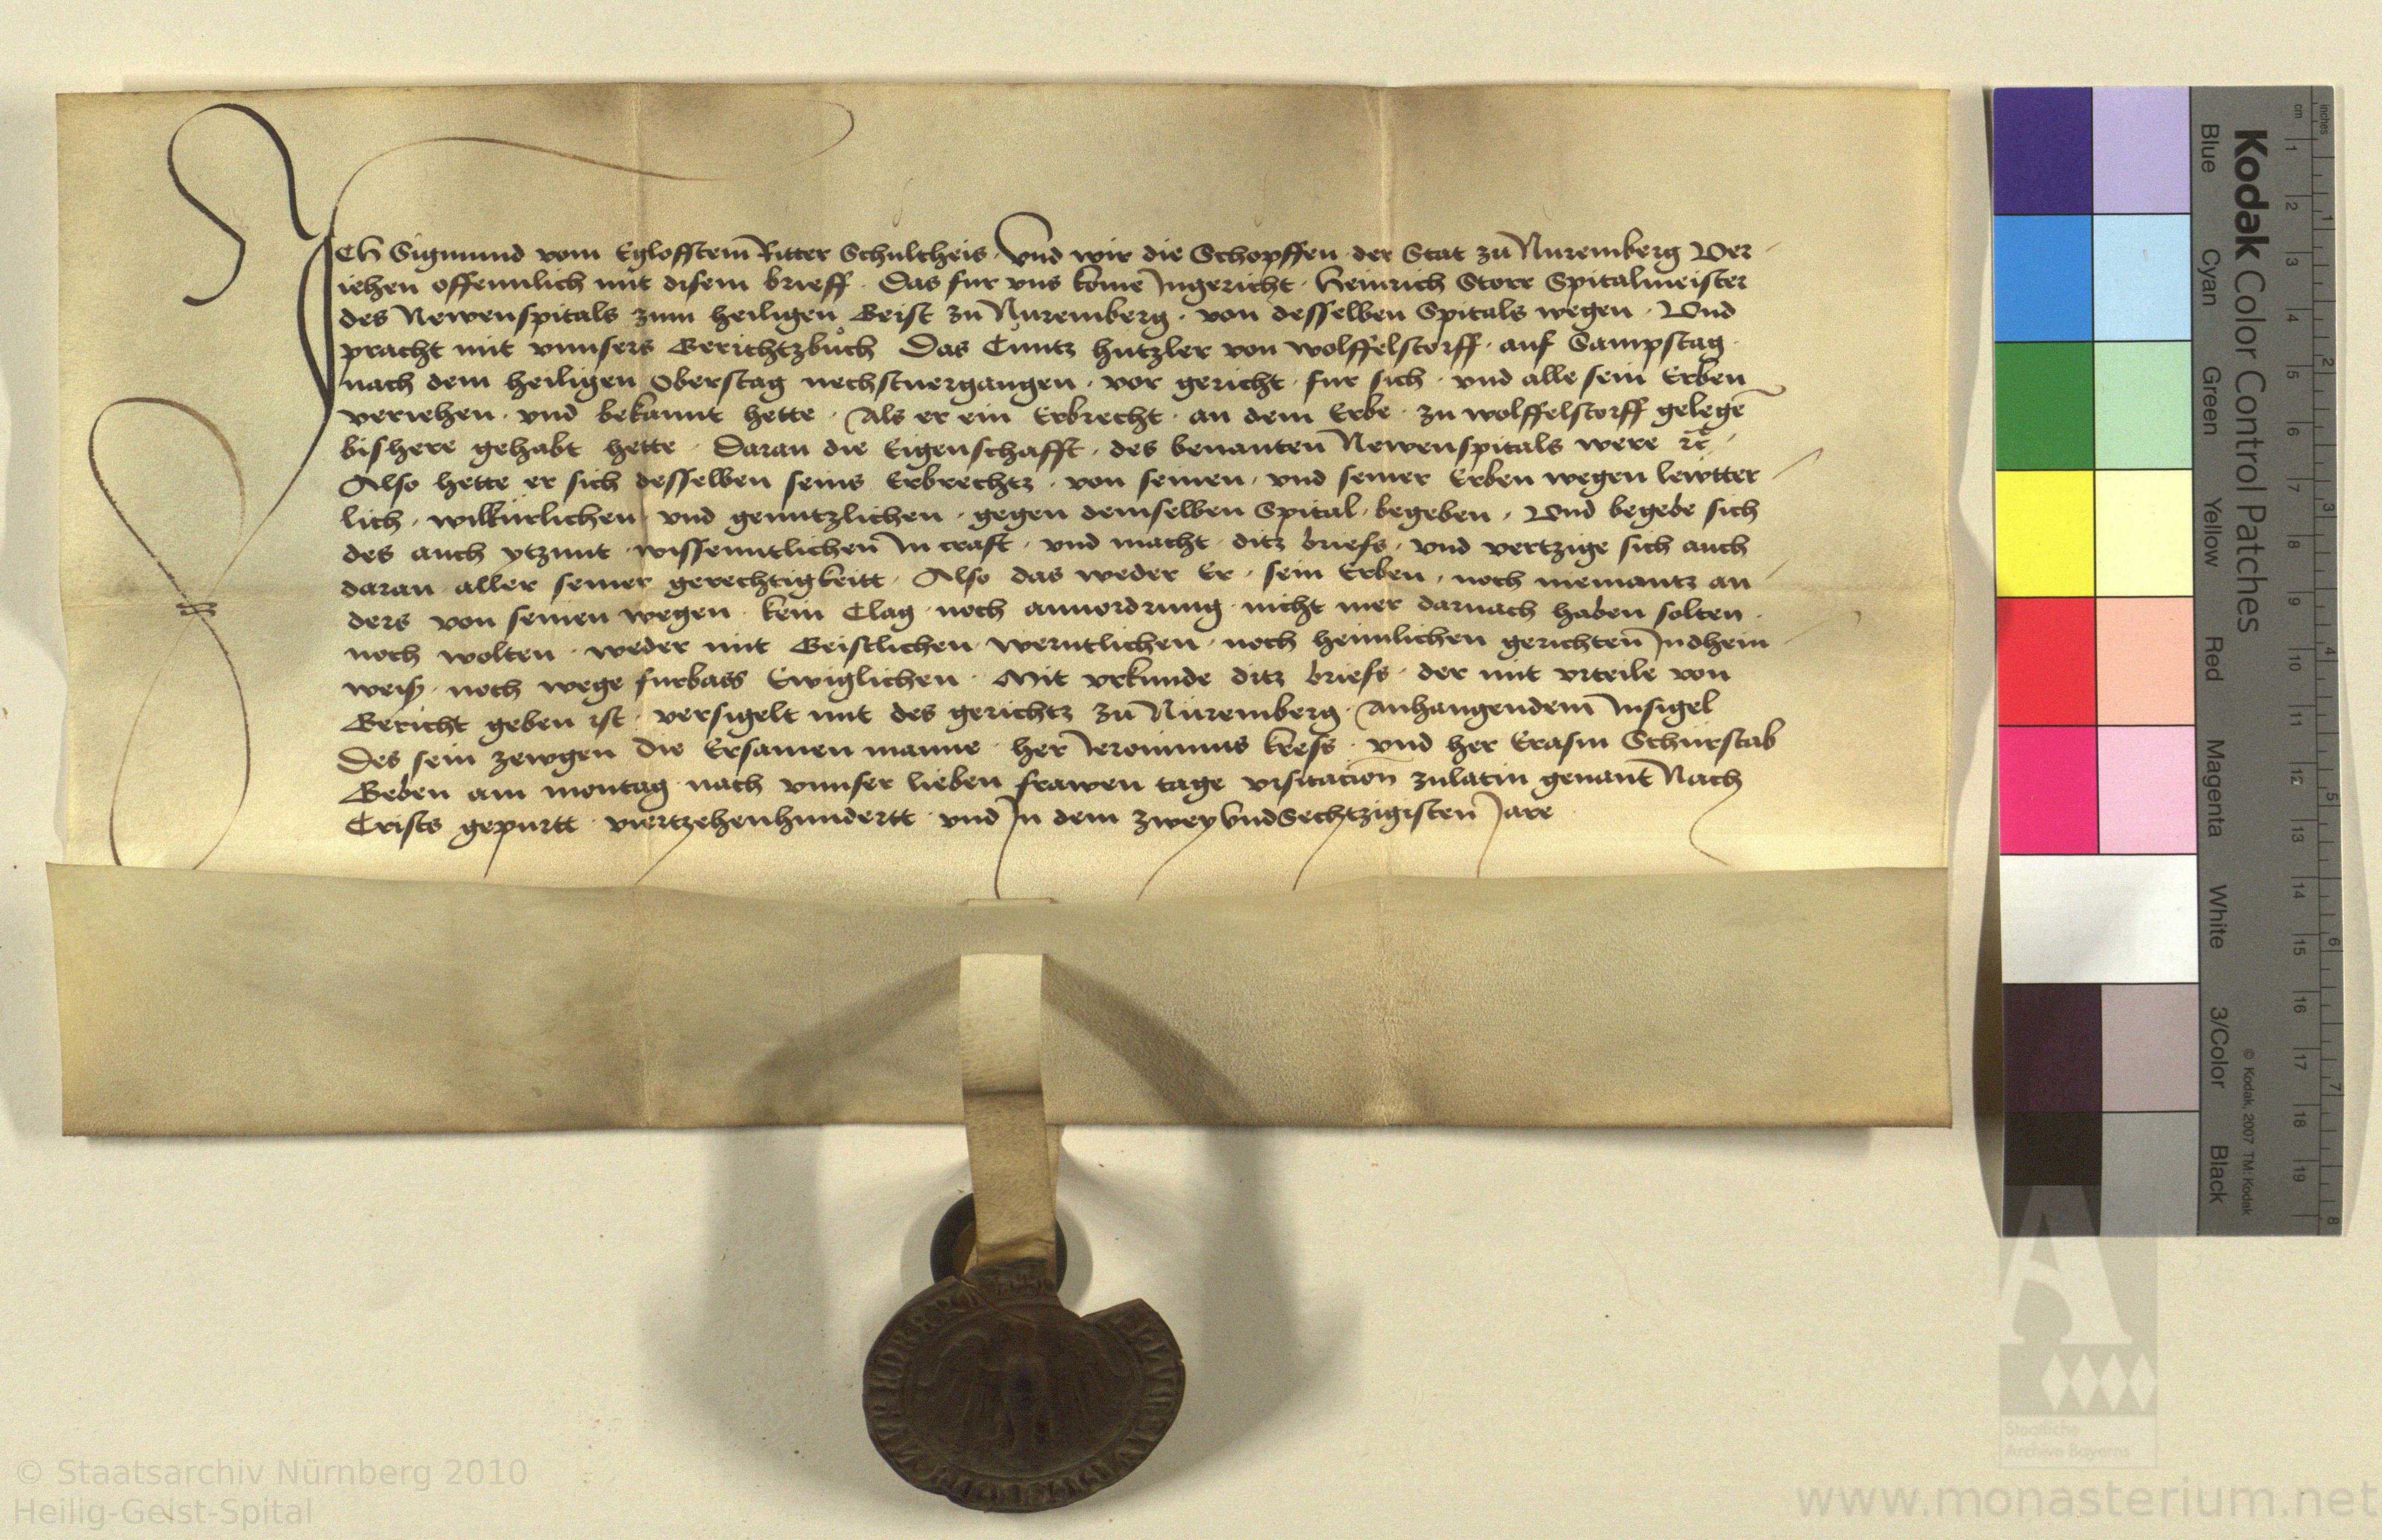 ICH Sigmund vom Eglofstein Ritter Schultheis · Vnd wir die Schopffen der Stat zu Nuremberg Ver
iehen offennlich mit disem brieff · Das fur vns kome Ingericht · Heinrich Storr Spitalmeister
des Newenspitals zum heiligen Geist zu Nuremberg · von desselben Spitals wegen · Vnd
pracht mit vnnsers Gerichtzbuch Das Cuntz hutzler von wolffelstorff · auf Sampstag
nach dem heiligen Oberstag nechstuergangen · vor gericht · fur sich · vnd alle sein Erben
veriehen · vnd bekannt hette · Als er ein Erbrecht · an dem Erbe · zu wolffelstorff gelegē
bishere gehabt hette · Daran die Eigenschafft · des benanten Newenspitals were ꝛc̄
Also hette er sich desselben seins Erbrechtz · von seinen · vnd seiner Erben wegen lewtter
lich · wilkürlichen vnd genntzlichen · gegen demselben Spital · begeben · Vnd begebe sich
des auch ytzunt wissenntlichen In craft · vnd macht ditz briefs · vnd vertzige sich auch
daran aller seiner gerechtigkeitt · Also das weder Er · sein Erben · noch niemantz an
ders von seinen wegen · kein Clag · noch anuordrung nicht mer darnach haben solten ·
noch wolten · weder mit Geistlichen werntlichen · noch heimlichen gerichten Indhein
weiß · noch wege furbass Ewiglichen · Mit vrkunde ditz briefs · der mit vrteile von
Gericht geben ist · versigelt mit des gerichtz zu Nuremberg · Anhangendem Insigel
Des sein zewgen Die Ersamen manne · her Ieronimus kress · vnd her Erasm Schürstab
Geben am montag nach vnnser lieben frawen tage visitacion zulatin genant Nach
Crists gepurtt · viertzehenhundertt · vnd In dem zwey vnd Sechtzigisten Jare
Kodak Color Control Patches
Blue Cyan Green Yellow Red Magenta White 3/Color Black
© Kodak, 2007 TM: Kodak
inches 1 2 3 4 5 6 7 8
cm 1 2 3 4 5 6 7 8 9 10 11 12 13 14 15 16 17 18 19
Staatliche
Archive Bayerns
© Staatsarchiv Nürnberg 2010
Heilig-Geist-Spital
www.monasterium.net